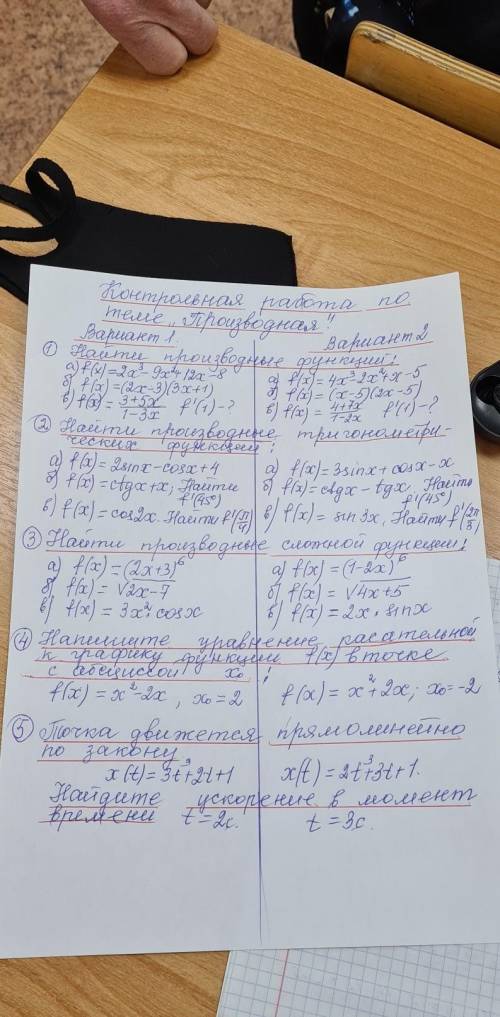 Контрольная работа по
теме „Производная!"
Вариант 1. Вариант 2
① Найти производные функций:
а) f(x)=2x³-9x²+12x-8 а) f(x)=4x³-2x²+x-5
б) f(x)=(2x-3)(3x+1) б) f(x)=(x-5)(2x-5)
в) f(x)=(3+5x)/(1-3x) f'(1)-? в) f(x)=(4+7x)/(7-2x) f'(1)-?
② Найти производные тригонометри-
ческих функций:
а) f(x)=2sinx-cosx+4 а) f(x)=3sinx+cosx-x
б) f(x)=ctgx+x, Найти f'(45°) б) f(x)=ctgx-tgx, Найти f'(45°)
в) f(x)=cos2x. Найти f'(π/4) в) f(x)=sin3x, Найти f'(2π/3)
③ Найти производные сложной функции:
а) f(x)=(2x+3)⁶ а) f(x)=(1-2x)⁶
б) f(x)=√2x-7 б) f(x)=√4x+5
в) f(x)=3x²·cosx в) f(x)=2x·sinx
④ Напишите уравнение касательной
к графику функции f(x) в точке
с абсциссой x₀!
f(x)=x²-2x, x₀=2 f(x)=x²+2x; x₀=-2
⑤ Точка движется прямолинейно
по закону
x(t)=3t³+2t+1 x(t)=2t³+3t+1.
Найдите ускорение в момент
времени t=2с. t=3с.